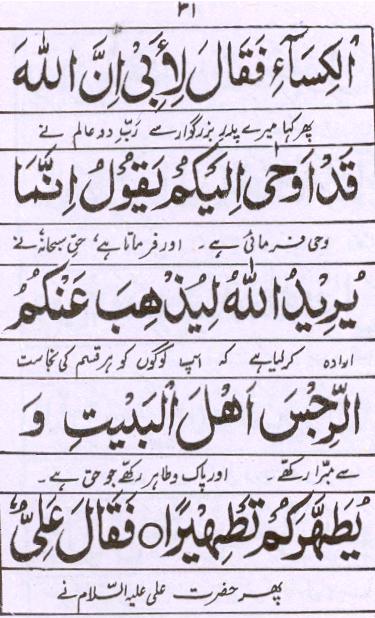 ۳۱
الْكِسَآءِ فَقَالَ لِأَبِيْ اِنَّ اللهَ
پھر کہا میرے پدر بزرگوار سے ربّ دو عالم نے
قَدْ اَوْحٰى اِلَيْكُمْ يَقُوْلُ اِنَّمَا
وحی فرمائی ہے۔ اور فرماتا ہے، حق سبحانہٗ نے
يُرِيْدُ اللهُ لِيُذْهِبَ عَنْكُمُ
ارادہ کرلیا ہے کہ آپ لوگوں کو ہر قسم کی نجاست
الرِّجْسَ اَهْلَ الْبَيْتِ وَ
سے مبرّا رکھے۔ اور پاک و طاہر رکھے جو حق ہے۔
يُطَهِّرَكُمْ تَطْهِيْرًا○ فَقَالَ عَلِيٌّ
پھر حضرت علی علیہ السّلام نے